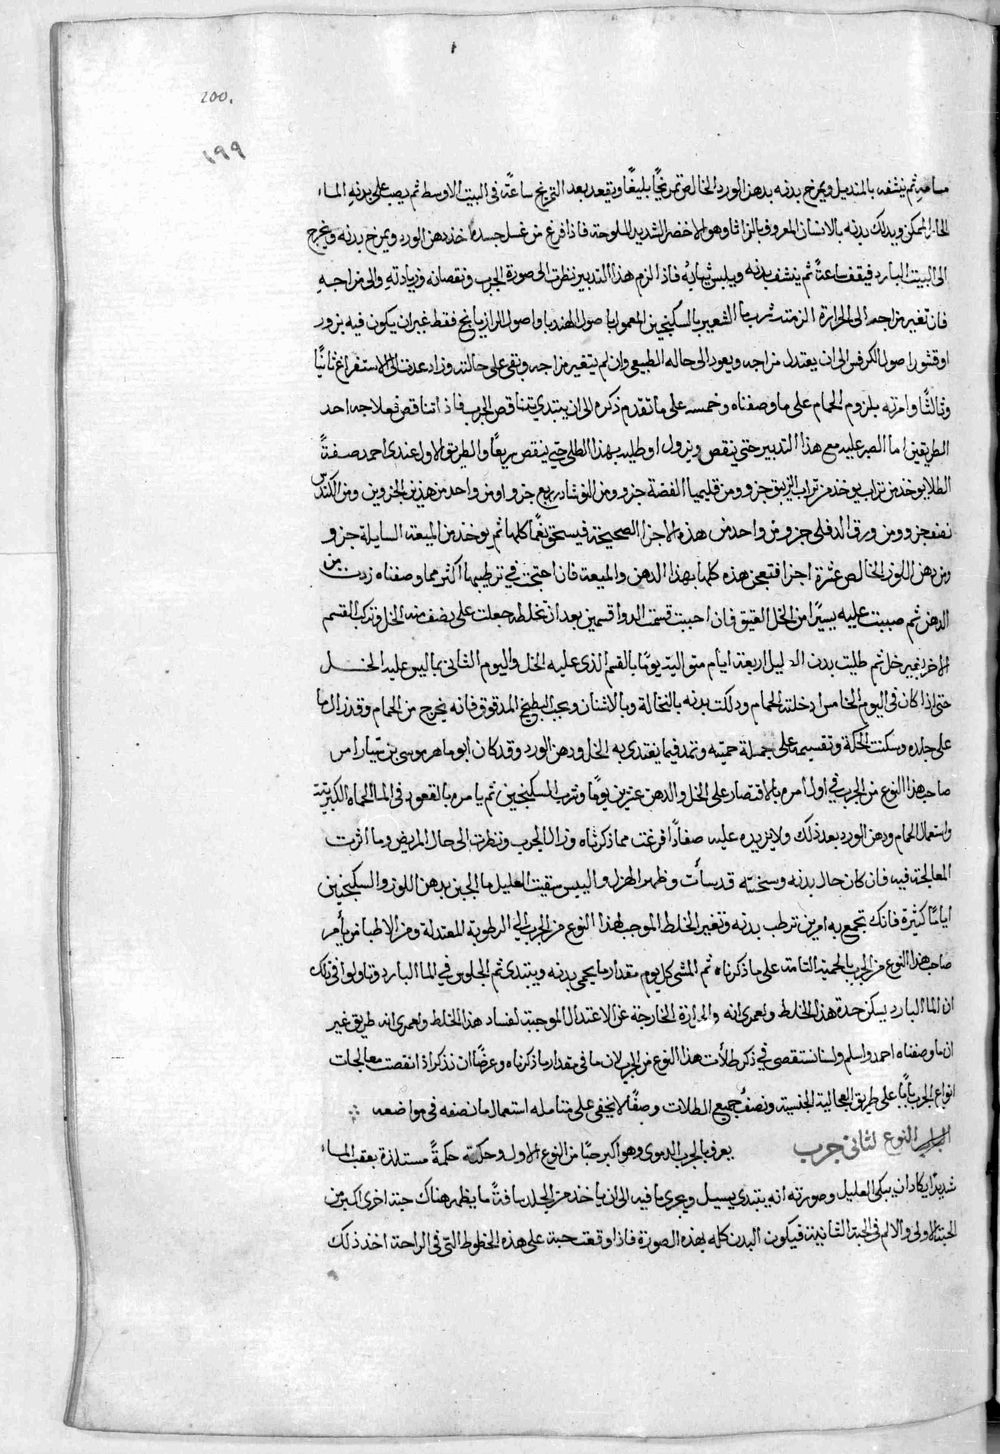 200.
١٩٩
مسامه ثم ينشفه بالمنديل ويمرخ بدنه بدهن الورد الخالص تمريخًا بليغًا ويقعد بعد التمريخ ساعة في البيت الاوسط ثم يصب على بدنه الماء
الحار الممكن ويدلك بدنه بالاشنان المعروف وهو الاخضر الشديد الملوحة فاذا فرغ من غسل جسده اخذ دهن الورد ويمرخ بدنه ويخرج
الى البيت البارد فيقف ساعةً ثم ينشف بدنه ويلبس ثيابه فاذا لزم هذا التدبير نظرت الى صورة الجرب ونقصانه وزيادته والى مزاجه
فان تغير مزاجه الى الحرارة الزمته شرب ما الشعير بالسكنجبين المعمول باصول الهندبا واصول الرازيانج فقط غير ان يكون فيه بزور
او قشور اصول الكرفس الى ان يعتدل مزاجه ويعود الى حاله الطبيعي وان لم يتغير مزاجه وبقى على حالته وزاد عدت الى الاستفراغ ثانيًا
وثالثًا وامرته بلزوم الحمام على ما وصفناه وخمسه على ما تقدم ذكره الى ان يبتدي يتناقص الجرب فاذا تناقص فعلاجه احد
الطريقين اما الصبر عليه مع هذا التدبير حتى ينقص ويزول او طليه بهذا الطلى حتى ينقص ربعًا والطريق الاول عندي احمد صفةً
الطلا يوخذ من تراب الزيبق جزو ومن قليميا الفضة جزو ومن النوشادر ربع جزو او من واحد من هذين الجزوين ومن الكندس
نصف جزو ومن ورق الدفلى جزو من واحد من هذه الاجزا الصحيحة فيسحق نعمًا كلها ثم يوخذ من الميعة السايلة جزو
ومن دهن اللوز الخالص عشرة اجزا فتعجن هذه كلها بهذا الدهن والميعة فان احتجت في ترطيبها اكثر مما وصفناه زدت من
الدهن ثم صببت عليه يسيرًا من الخل العتيق فان احببت قسمت الدوا قسمين بعد ان تخلطه جعلت على نصف منه الخل وتركت القسم
الاخر بغير خل ثم طليت بدن العليل اربعة ايام متوالية يومًا بالقسم الذي عليه الخل واليوم الثاني بما ليس عليه الخل
حتى اذا كان في اليوم الخامس ادخلته الحمام ودلكت بدنه بالنخالة وبالاشنان وبحب البطيخ المدقوق فانه يخرج من الحمام وقد زال ما
على جلده وسكنت الحكة وتقسيمه على جملة حميته وتمد فيما يغتذي به الخل ودهن الورد وقد كان ابو ماهر موسى بن سيار امر
صاحب هذا النوع من الجرب في اول امره بالاقتصار على الخل والدهن عشرين يومًا وشرب السكنجبين ثم يامره بالقعود في الما الحماة الكبريتية
واستعمال الحمام ودهن الورد بعد ذلك ولا يزيده عليه فاذا فرغت مما ذكرناه وزال الجرب ونظرت الى حال المريض وما اثرت
المعالجة فيه فان كان حال بدنه وسحنته قد ساءت وظهر الهزل واليبس سقيت العليل ما الجبن بدهن اللوز والسكنجبين
ايامًا كثيرة فانك تجمع به امرين ترطب بدنه وتغير الخلط الموجب لهذا النوع من الجرب الى الرطوبة المعتدلة ومن الاطبا من يأمر
صاحب هذا النوع من الجرب بالحمية التامة على ما ذكرناه ثم المشي كل يوم مقدار ما يحمي بدنه ويبتدي ثم الجلوس في الما البارد وتاولوا في ذلك
ان الما البارد يسكن حدة هذا الخلط ولعمري انه والحرارة الخارجة عن الاعتدال الموجبة لفساد هذا الخلط ولعمري انه طريق غير
ان ما وصفناه احمد واسلم ولسنا نستقصي في ذكر طلأت هذا النوع من الجرب لان ما في مقدار ما ذكرناه وعرضًا ان نذكر اذا نقصت معالجات
انواع الجرب بابًا على طريق العجالية الجنسية ونصف جميع الطلات وصفًا لا يخفى على متامله استعمال ما نصفه في مواضعه
النوع الثاني جرب يعرف بالجرب الدموي وهو اكبر حبًا من النوع الاول وحكته حكةً مستلذة يعقب الماء
شديدًا يكاد ان يبكى العليل وصورته انه يبتدي يسيل ويجرى ما فيه الى ان ياخذ من الجلد مسافةً ما يظهر هناك حبة اخرى اكبر من
الحبة الاولى والالم في الحبة الثانية فيكون البدن كله بهذه الصورة فاذا وقعت حبة على هذه الخطوط التي في الراحة اخذ ذلك